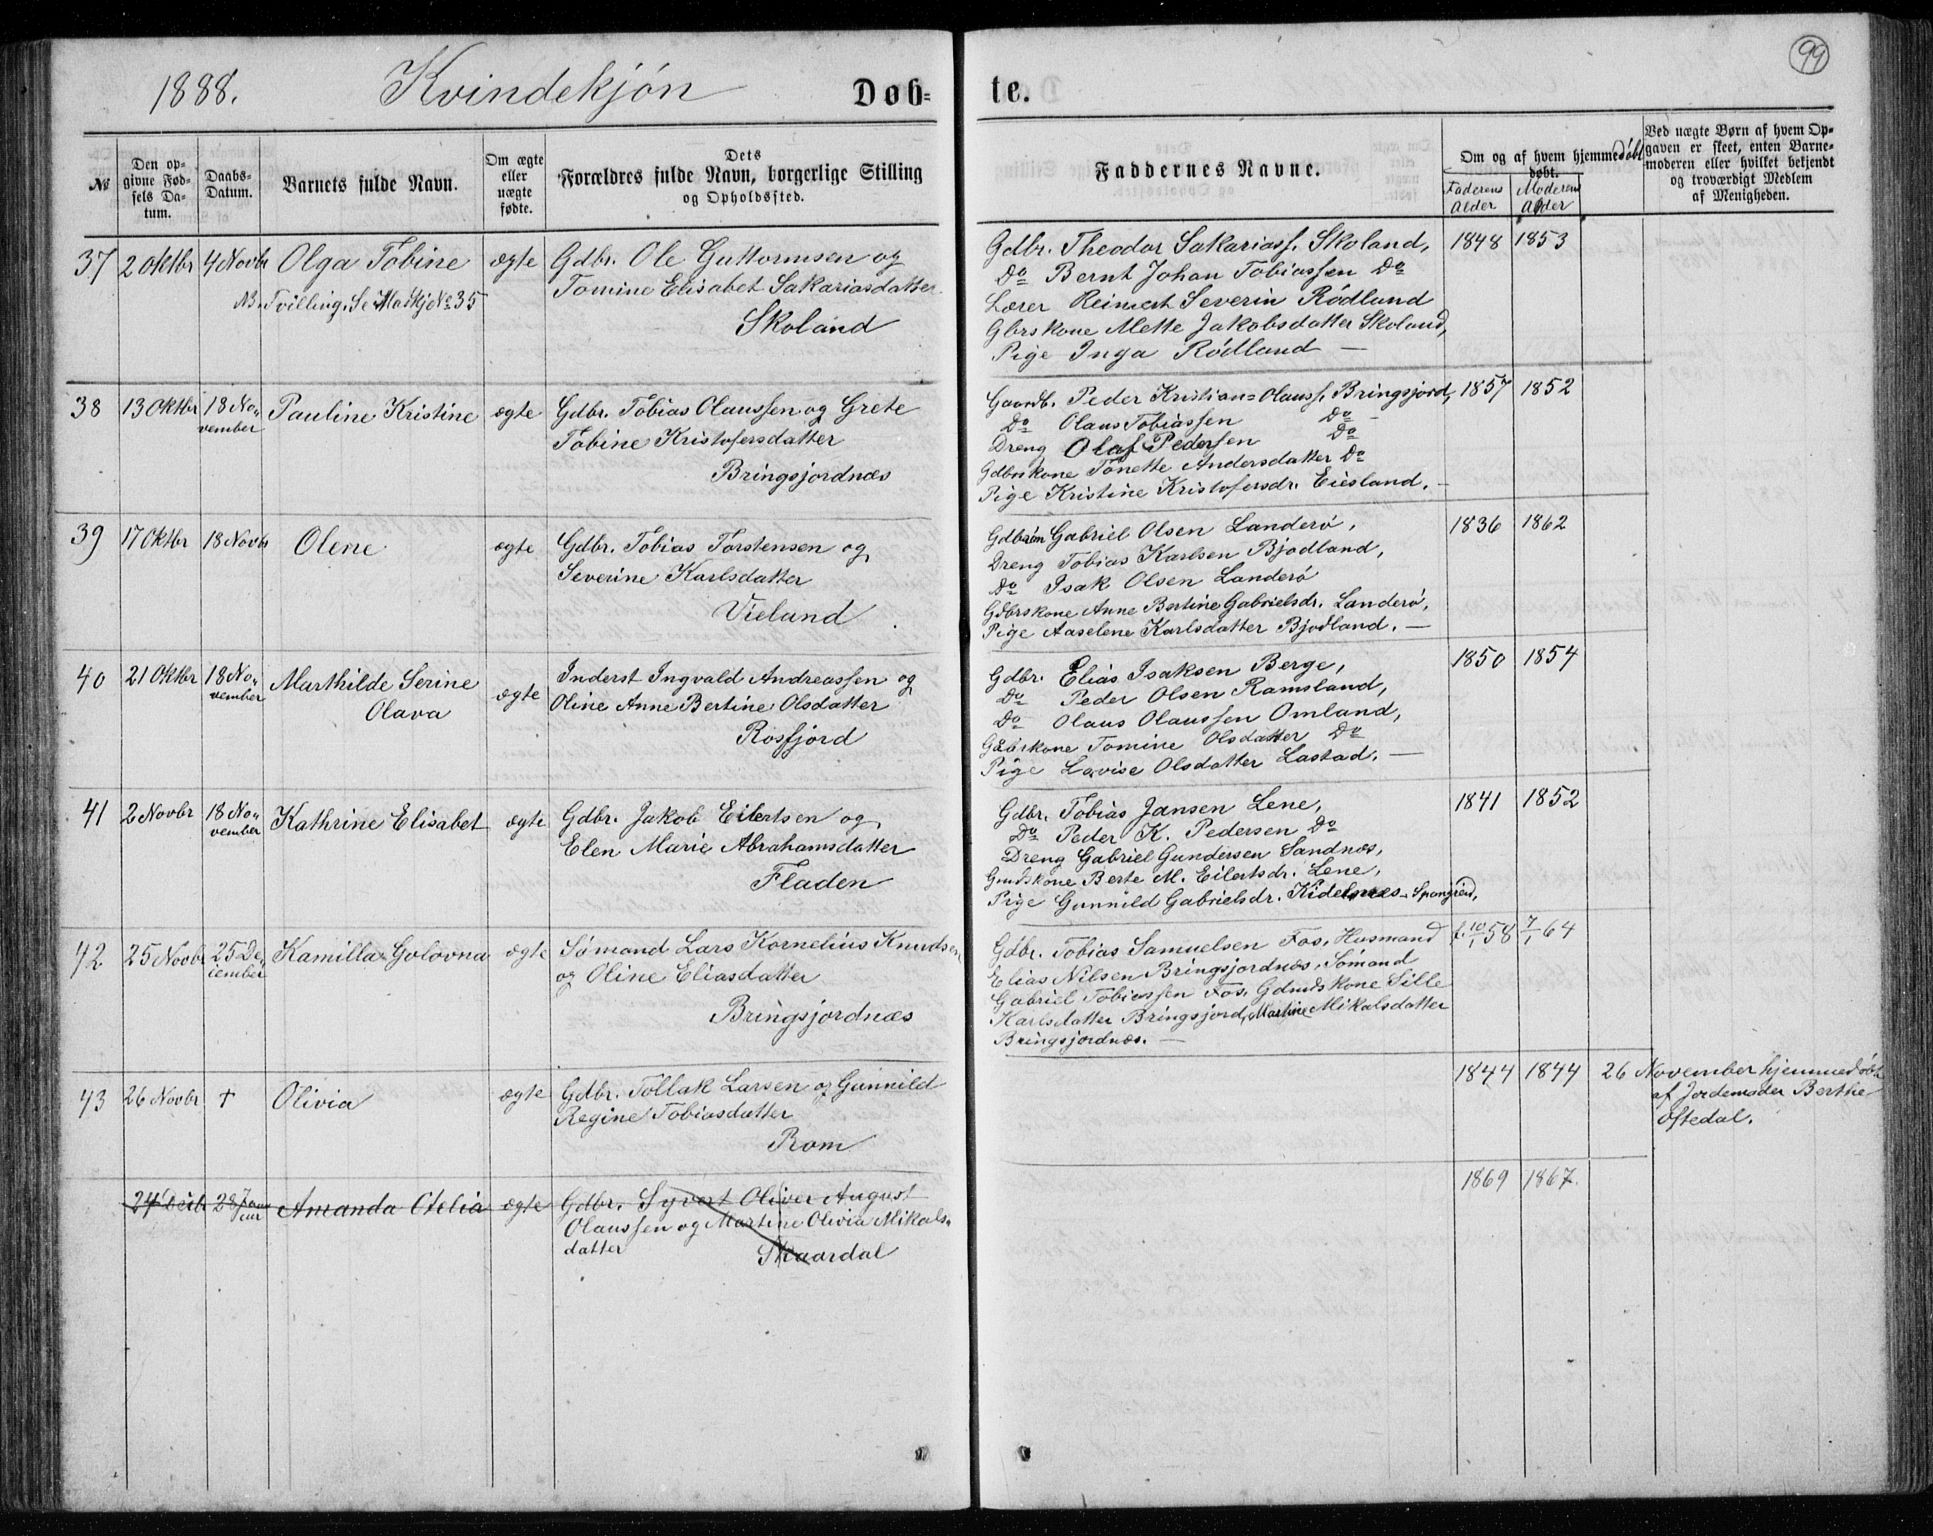 99
1888. Kvindekjøn Døb= te.
№
Den op-
givne Fød-
sels Da-
tum.
Daabs-
Datum.
Barnets fulde Navn.
Om ægte
eller
uægte
fødte.
Dets
Forældres fulde Navn, borgerlige Stilling
og Opholdssted.
Faddernes Navne.
Om og af hvem hjemmedøbt
døbt.
Faderens
Alder
Moderens
Alder
Ved uægte Børn af hvem Op-
gaven er skeet, enten Barne-
moderen eller hvilket bekjendt
og troværdigt Medlem
af Menigheden.
37 2 Oktbr 4 Novbr Olga Tobine ægte Gdbr. Ole Guttormsen og
NB. Tvilling, Se Mandkj № 35
Tomine Elisabet Sakariasdatter
Skoland
Gdbr. Theodor Sakariass. Skoland, 1848 1853
Do Bernt Johan Tobiassen Do
Lærer Reinert Severin Rødland
Gbrskone Mette Jakobsdatter Skoland,
Pige Inga Rødland —
38 13 Oktbr 18 No-
vember
Pauline Kristine ægte Gdbr. Tobias Olaussen og Grete
Tobine Kristofersdatter
Bringsjordnæs
Gaardb. Peder Kristian= Olauss. Bringsjord, 1857 1852
Do Olaus Tobiassen Do
Dreng Olaf Pedersen Do
Gdbrskone Tonette Andersdatter Do
Pige Kristine Kristofersdr. Eiesland. —
39 17 Oktbr 18 Novbr Olene ægte Gdbr. Tobias Torstensen og
Severine Karlsdatter
Vieland
Gdbrsøn Gabriel Olsen Landerø, 1836 1862
Dreng Tobias Karlsen Bjodland,
Do Isak Olsen Landerø
Gdbrskone Anne Bertine Gabrielsdr. Landerø,
Pige Aaselene Karlsdatter Bjodland. —
40 21 Oktbr 18 No-
vember
Marthilde Serine
Olava
ægte
Inderst Ingvald Andreassen og
Oline Anne Bertine Olsdatter
Rosfjord
Gdbr. Elias Isaksen Berge, 1850 1854
Do Peder Olsen Ramsland,
Do Olaus Olaussen Omland,
Gdbrskone Tomine Olsdatter Do
Pige Lovise Olsdatter Lastad. —
41 2 Novbr 18 No-
vember
Kathrine Elisabet ægte Gdbr. Jakob Eilertsen og
Elen Marie Abrahamsdatter
Fladen
Gdbr. Tobias Jansen Lene, 1841 1852
Do Peder K. Pedersen Do
Dreng Gabriel Gundersen Sandnæs,
Gmdskone Berte M. Eilertsdr. Lene,
Pige Gunnild Gabrielsdr. Kidelnæs - Spangreid,
42 25 Novbr 25 De-
cember
Kamilla Golovna ægte Sømand Lars Kornelius Knudsen
og Oline Eliasdatter
Bringsjordnæs
Gdbr. Tobias Samuelsen Fos, Husmand f. 10/1 58 7/1 64
Elias Nilsen Bringsjordnæs, Sømand
Gabriel Tobiassen Fos, Gdmdskone Sille
Karlsdatter Bringsjord, Martine Mikalsdatter
Bringsjordnæs. —
43 26 Novbr † Olivia ægte Gdbr. Tollak Larsen og Gunnild
Regine Tobiasdatter
Rom
1844 1844 26 November hjemmedøbt
af Jordemoder Berthe
Oftedal.
24 Decbr 28 Janu
uar
Amanda Otelia ægte Gdbr. Syvert Oliver August
Olaussen og Martine Olivia Mikals-
datter
Skaardal
1869 1867.